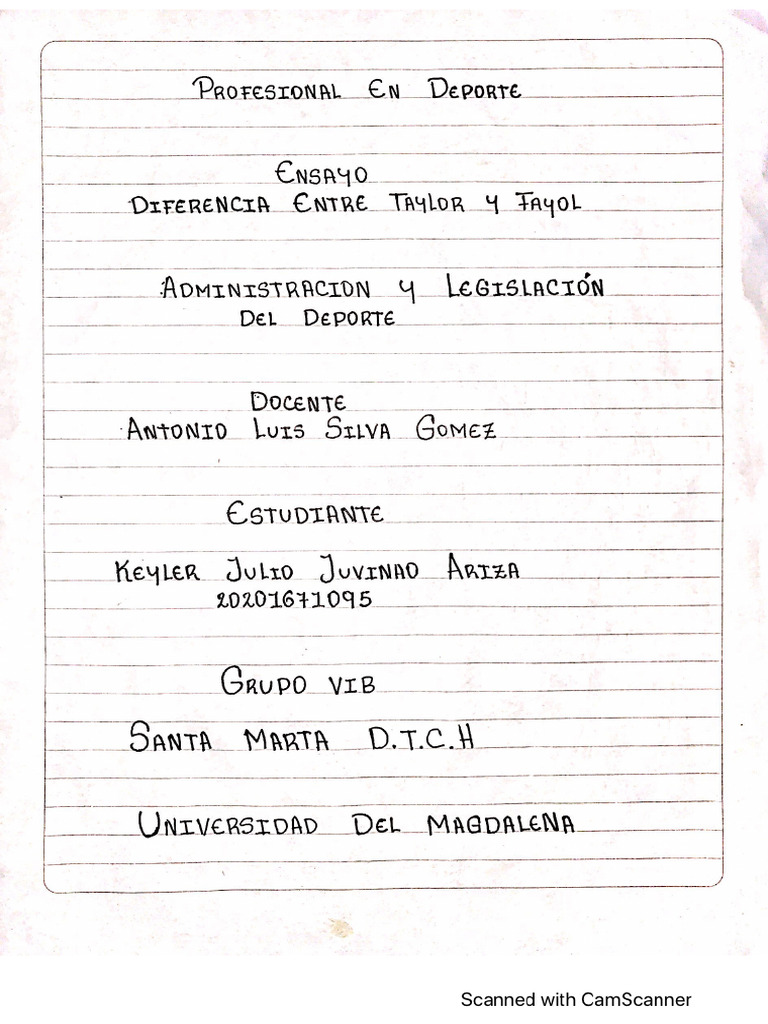 PROFESIONAL EN DEPORTE
ENSAYO
DIFERENCIA ENTRE TAYLOR Y FAYOL
ADMINISTRACION Y LEGISLACIÓN
DEL DEPORTE
DOCENTE
ANTONIO LUIS SILVA GOMEZ
ESTUDIANTE
KEYLER JULIO JUVINAO ARIZA
20201671095
GRUPO VIB
SANTA MARTA D.T.C.H
UNIVERSIDAD DEL MAGDALENA
Scanned with CamScanner